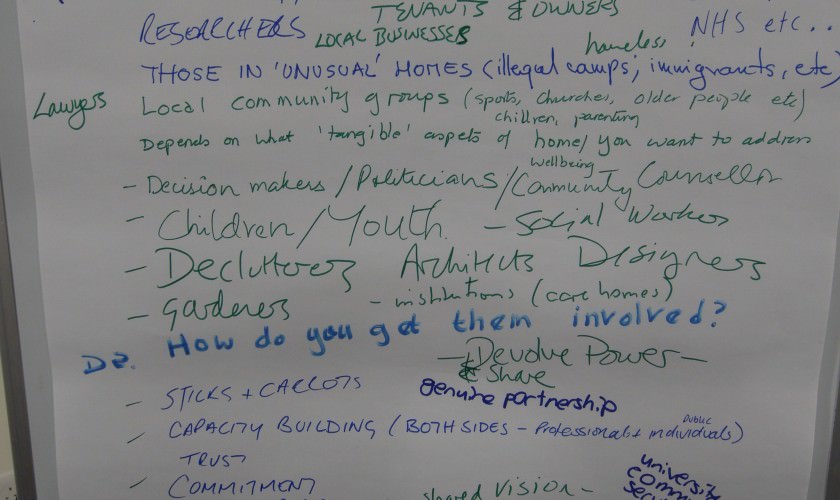 TENANTS & OWNERS
RESEARCHERS LOCAL BUSINESSES NHS etc...
homeless
THOSE IN 'UNUSUAL' HOMES (illegal camps, immigrants, etc)
Lawyers Local community groups (sports, churches, older people etc)
children, parenting
Depends on what 'tangible' aspects of home/ you want to address
wellbeing
- Decision makers / Politicians / Community Counsellor
- Children / Youth - Social Workers
- Declutterers Architects Designers
- gardeners - institutions (care homes)
D2. How do you get them involved?
- Devolve Power -
& Share
- STICKS + CARROTS genuine partnership
- CAPACITY BUILDING (BOTH SIDES - Professionals + individuals)
public
TRUST
- COMMITMENT shared vision -
university